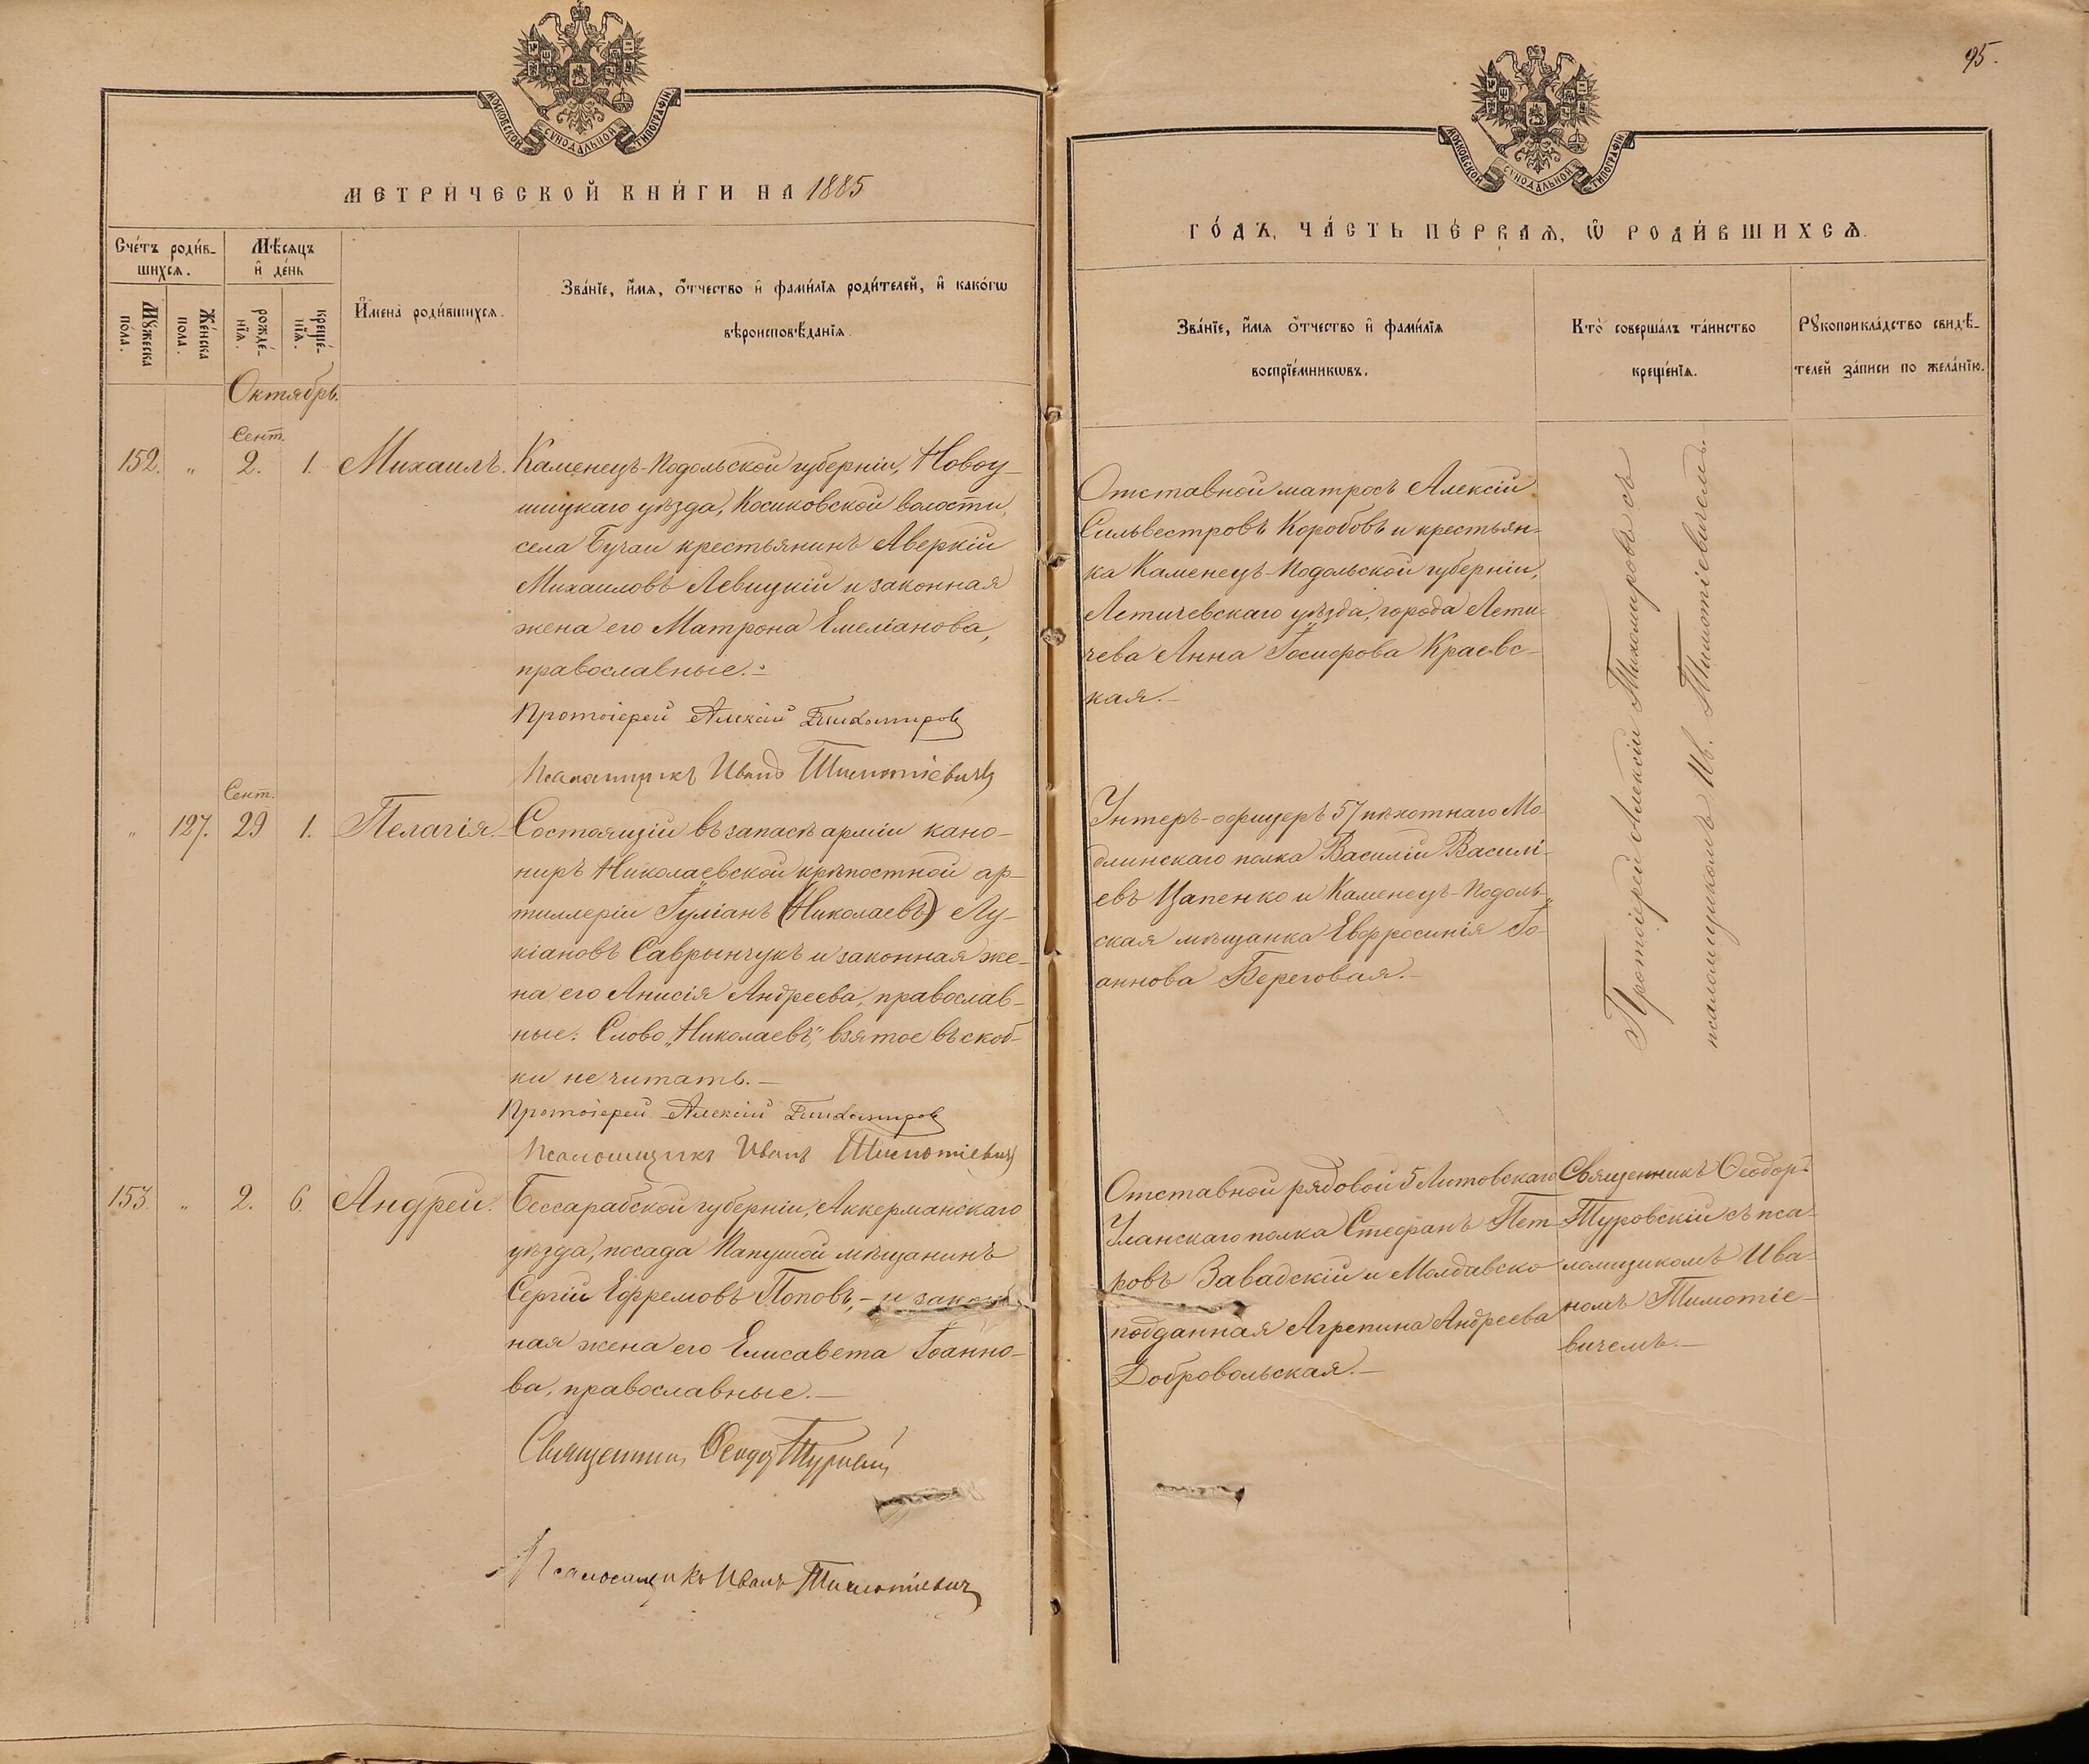 95.
МОСКОВСКОЙ СѴНОДАЛЬНОЙ ТИПОГРАФІИ
МОСКОВСКОЙ СѴНОДАЛЬНОЙ ТИПОГРАФІИ
МЕТРИ́ЧЕСКОЙ КНИ́ГИ НА 1885
Сче́тъ роди́в-
шихсѧ.
Мѣ́сѧцъ
и҆ де́нь
Мꙋ́жеска
по́ла.
Же́нска
пола.
рожде́-
нїѧ.
креще́-
нїѧ.
И҆мена̀ роди́вшихсѧ.
Зва́нїе, и҆́мѧ, ѻ҆́тчество и҆ фами́лїѧ роди́телей, и҆ како́гѡ
вѣроисповѣ́данїѧ.
Октябрь.
Сент.
152. „ 2. 1. Михаилъ.
Каменецъ-Подольской губерніи, Новоу-
шицкаго уѣзда, Косиковской волости,
села Бучаи крестьянинъ Аверкій
Михаиловъ Левицкій и законная
жена его Матрона Емеліанова,
православные.-
Протоіерей Алексій Тихомировъ
Псаломщикъ Иванъ Тимотіевичъ
Сент.
„ 127. 29 1. Пелагія.
Состоящій въ запасѣ арміи кано-
ниръ Николаевской крѣпостной ар-
тиллеріи Іуліанъ (Николаевъ) Лу-
кіановъ Саврынчукъ и законная же-
на его Анисія Андреева, православ-
ные. Слово „Николаевъ," взятое въ скоб-
ки не читать.-
Протоіерей Алексій Тихомировъ
Псаломщикъ Иванъ Тимотіевичъ
153. „ 2. 6. Андрей.
Бессарабской губерніи, Аккерманскаго
уѣзда, посада Папушой мѣщанинъ
Сергій Ефремовъ Поповъ,- и закон-
ная жена его Елисавета Іоанно-
ва, православные.-
Священникъ Ѳеодоръ Туровскій
Псаломщикъ Иванъ Тимотіевичъ
ГО́ДЪ, ЧА́СТЬ ПЕ́РВАѦ, Ѽ РОДИ́ВШИХСѦ.
Зва́нїе, и҆́мѧ ѻ҆́тчество и҆ фами́лїѧ
воспрїе́мникѡвъ.
Кто̀ соверша́лъ та́инство
креще́нїѧ.
Рꙋкоприкла́дство свидѣ́-
телей за́писи по жела́нїю.
Отставной матросъ Алексій
Сильвестровъ Коробовъ и крестьян-
ка Каменецъ-Подольской губерніи,
Летичевскаго уѣзда, города Лети-
чева Анна Іосифова Краевс-
кая.-
Унтеръ-офицеръ 57 пѣхотнаго Мо-
длинскаго полка Василій Василі-
евъ Цапенко и Каменецъ-Подоль-
ская мѣщанка Евфросинія Іо-
аннова Береговая.-
Протоіерей Алексій Тихомировъ съ
псаломщикомъ Ив. Тимотіевичемъ.
Отставной рядовой 5 Литовскаго
Уланскаго полка Стефанъ Пет-
ровъ Завадскій и Молдавско
подданная Агрепина Андреева
Добровольская.-
Священникъ Ѳеодоръ
Туровскій съ пса-
ломщикомъ Ива-
номъ Тимотіе-
вичемъ.-